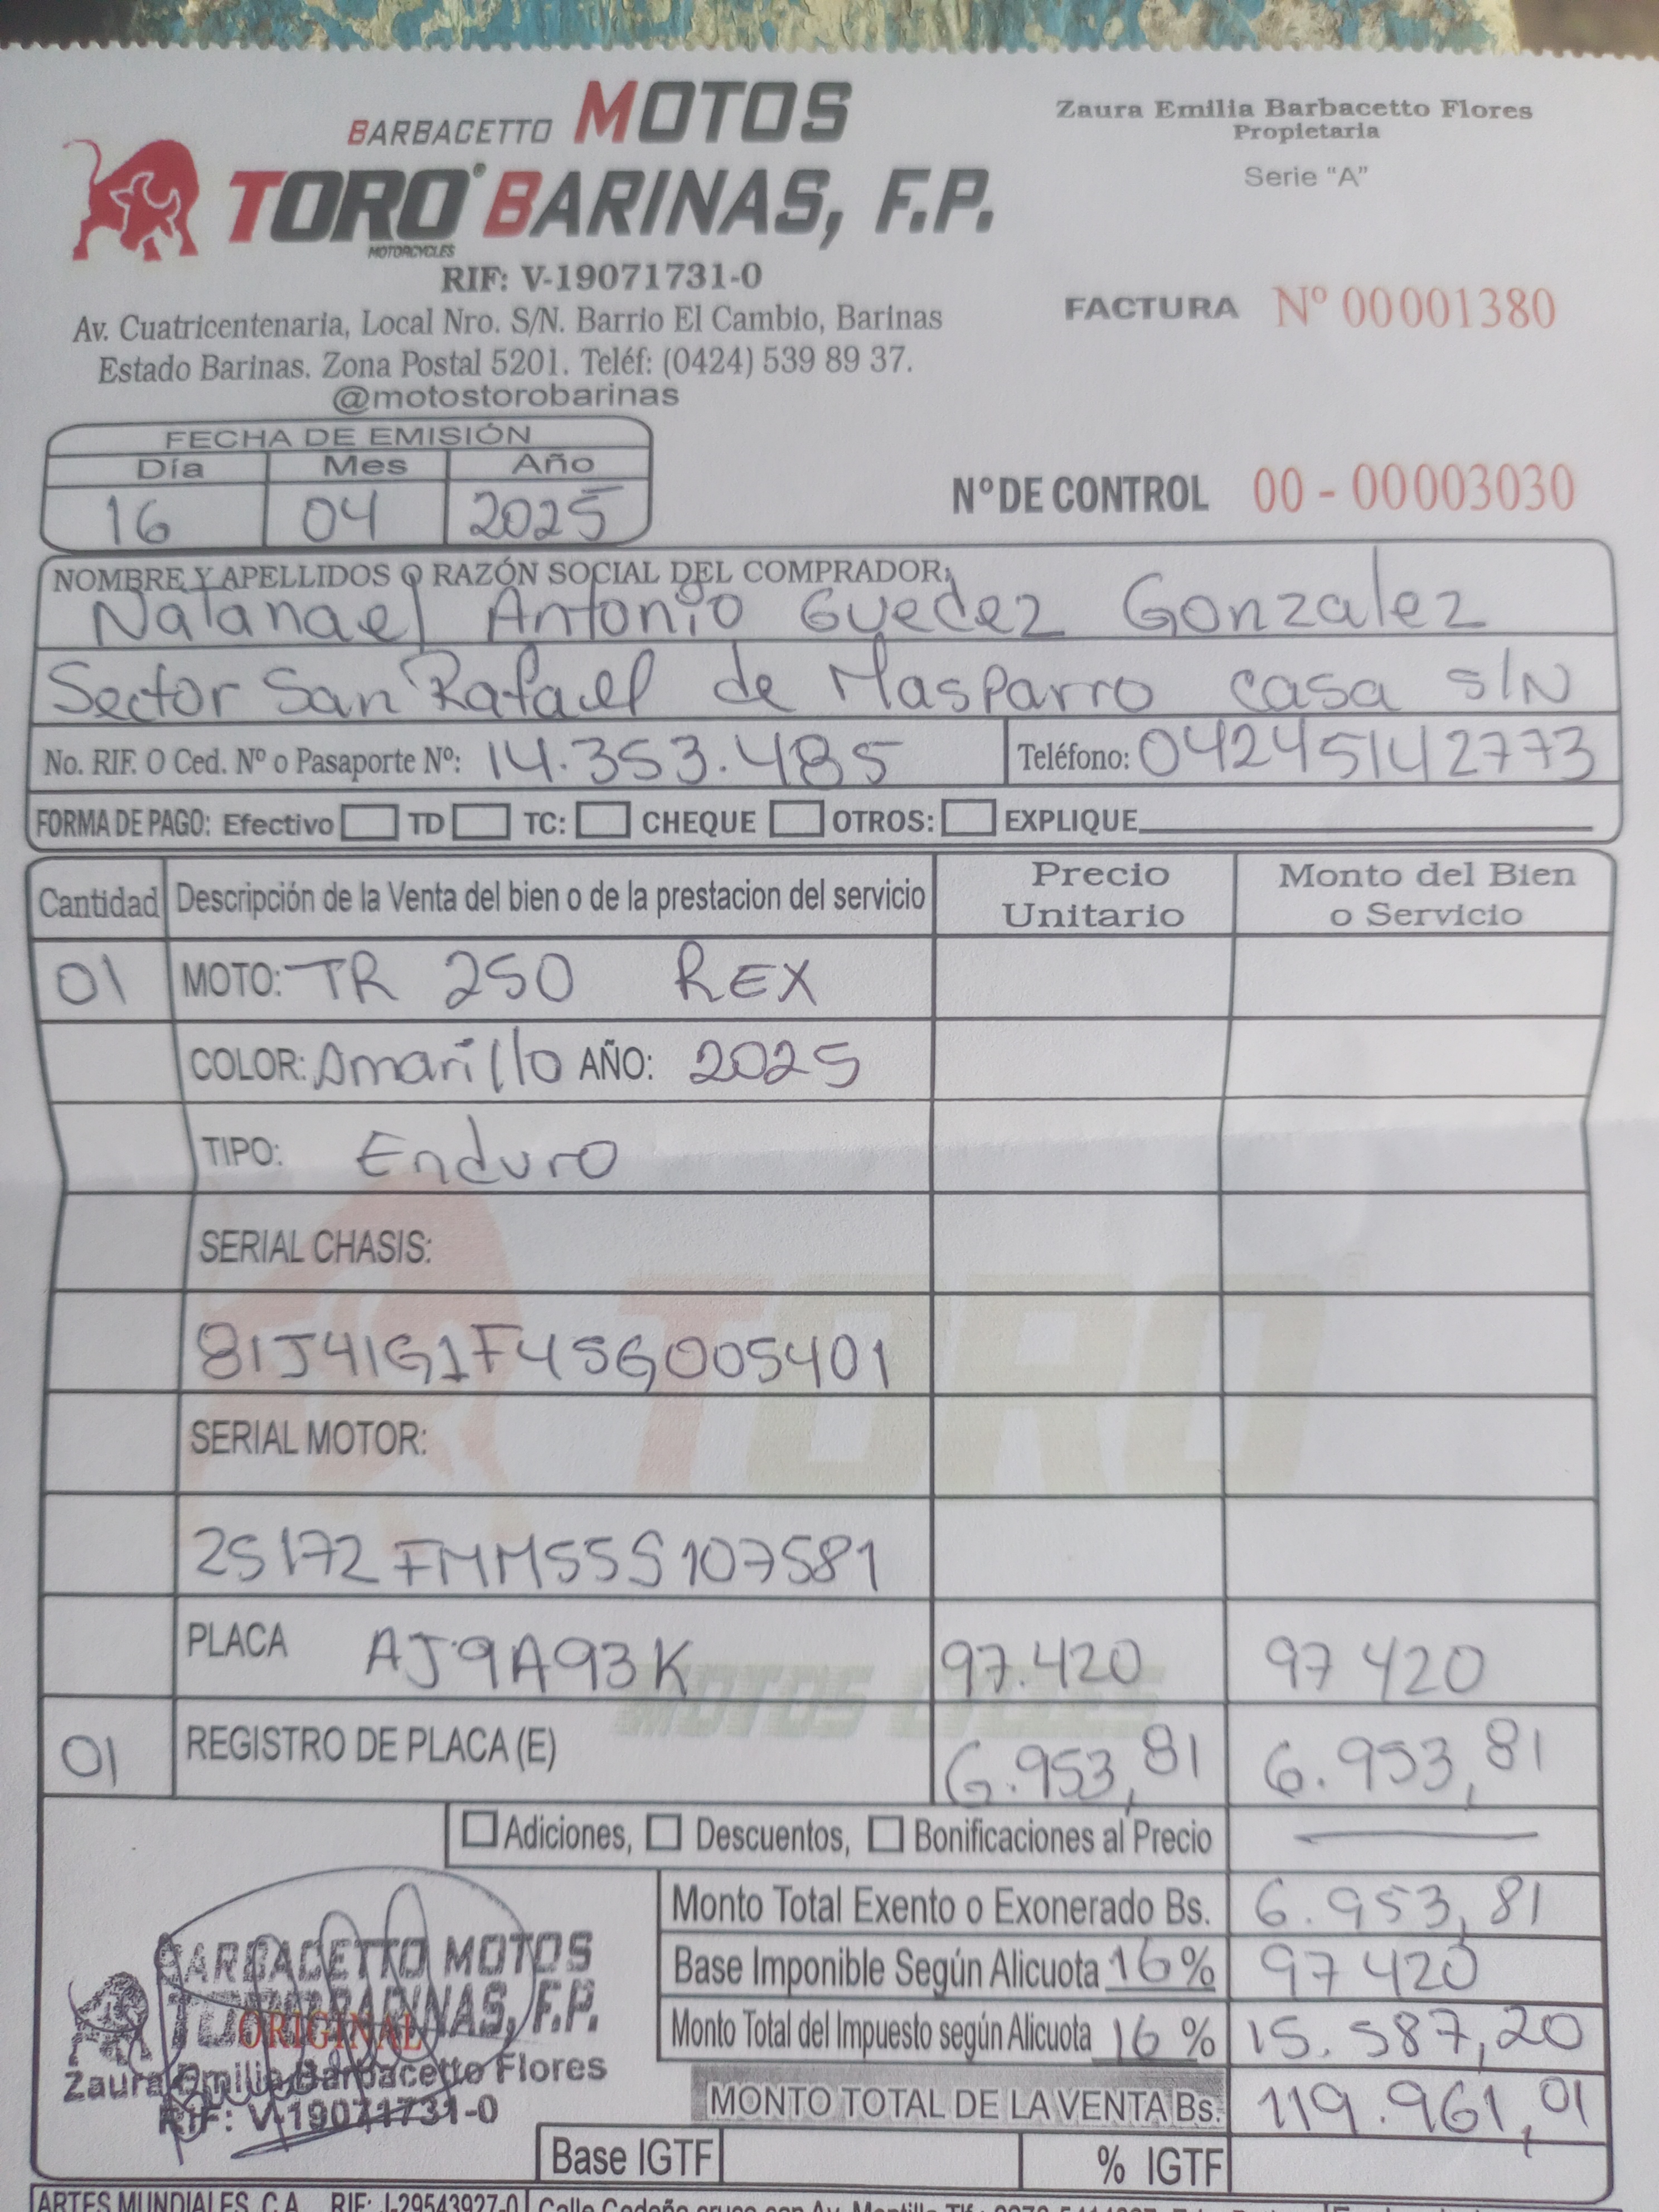 BARBACETTO MOTOS
TORO BARINAS, F.P.
MOTORCYCLES
RIF: V-19071731-0
Av. Cuatricentenaria, Local Nro. S/N. Barrio El Cambio, Barinas
Estado Barinas. Zona Postal 5201. Teléf: (0424) 539 89 37.
@motostorobarinas
Zaura Emilia Barbacetto Flores
Propietaria
Serie "A"
FACTURA Nº 00001380
FECHA DE EMISIÓN
Día Mes Año
16 04 2025
Nº DE CONTROL 00 - 00003030
NOMBRE Y APELLIDOS O RAZÓN SOCIAL DEL COMPRADOR:
Natanael Antonio Guedez Gonzalez
Sector San Rafael de Masparro casa s/N
No. RIF. O Ced. Nº o Pasaporte Nº: 14.353.485 Teléfono: 04245142773
FORMA DE PAGO: Efectivo TD TC: CHEQUE OTROS: EXPLIQUE
Cantidad Descripción de la Venta del bien o de la prestacion del servicio Precio Unitario Monto del Bien o Servicio
01 MOTO: TR 250 REX
COLOR: Amarillo AÑO: 2025
TIPO: Enduro
SERIAL CHASIS:
81J41G1F4SG005401
SERIAL MOTOR:
TORO
2S172FMM55S107581
PLACA AJ9A93K 97.420 97420
MOTOS CYCLES
01 REGISTRO DE PLACA (E) 6.953,81 6.953,81
Adiciones, Descuentos, Bonificaciones al Precio
Monto Total Exento o Exonerado Bs. 6.953,81
Base Imponible Según Alicuota 16% 97420
Monto Total del Impuesto según Alicuota 16% 15.587,20
MONTO TOTAL DE LA VENTA Bs. 119.961,01
BARBACETTO MOTOS
TORO BARINAS, F.P.
ORIGINAL
Zaura Emilia Barbacetto Flores
RIF: V-19071731-0
Base IGTF % IGTF
ARTES MUNDIALES, C.A. RIF: J-29543927-0